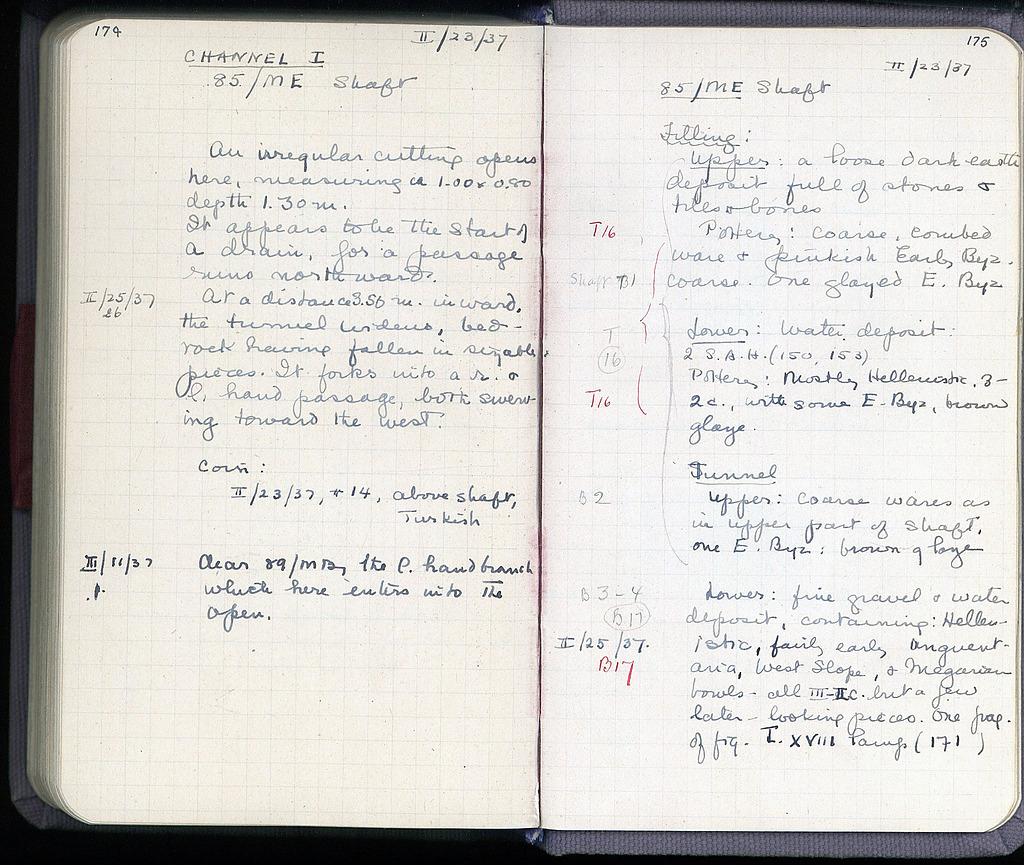 174
II/23/37
CHANNEL I
85/ME Shaft
An irregular cutting opens
here, measuring ca 1.00 x 0.80
depth 1.30 m.
It appears to be the start of
a drain, for a passage
runs northward.
II/25/37
26
At a distance 3.50 m. inward,
the tunnel widens, bed-
rock having fallen in sizable
pieces. It forks into a r. &
l. hand passage, both swerv-
ing toward the west.
Coin:
II/23/37, #14, above shaft,
Turkish
III/11/37
p.
Clear 89/MB, the l. hand branch
which here enters into the
open.
175
II/23/37
85/ME Shaft
Filling:
Upper: a loose dark earth
deposit full of stones &
tiles & bones
T16
Pottery: coarse, combed
ware & pinkish Early Byz.
Shaft B1
coarse. One glazed E. Byz
Lower: Water deposit:
T
16
2 S.A.H. (150, 153)
Pottery: Mostly Hellenistic, 3-
T16
2c., with some E. Byz, brown
glaze.
Tunnel
B2
Upper: coarse wares as
in upper part of shaft,
one E. Byz: brown glaze
B3-4
Lower: fine gravel & water
B17
deposit, containing: Hellen-
II/25/37.
istic, fairly early unguent-
B17
aria, West Slope, & Megarian
bowls - all III-II c. but a few
later-looking pieces. One frag.
of fig. T. XVIII lamp (171)